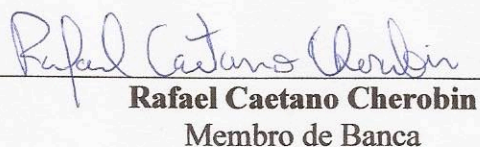 Rafael Caetano Cherobin
Rafael Caetano Cherobin
Membro de Banca